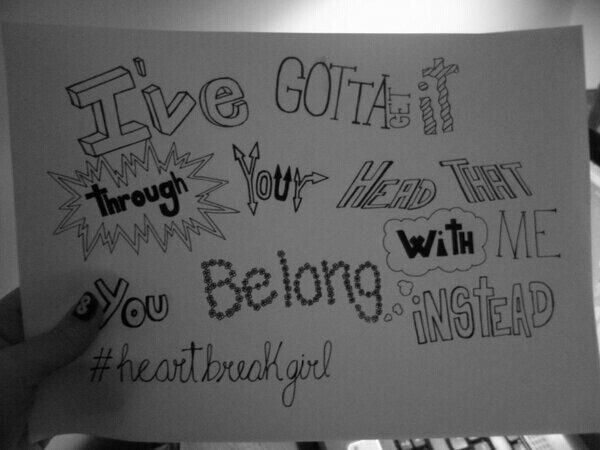 I've GOTTA GET it
through YOUr HEAD THAT
YOU Belong WitH ME
iNStEAD
#heartbreakgirl